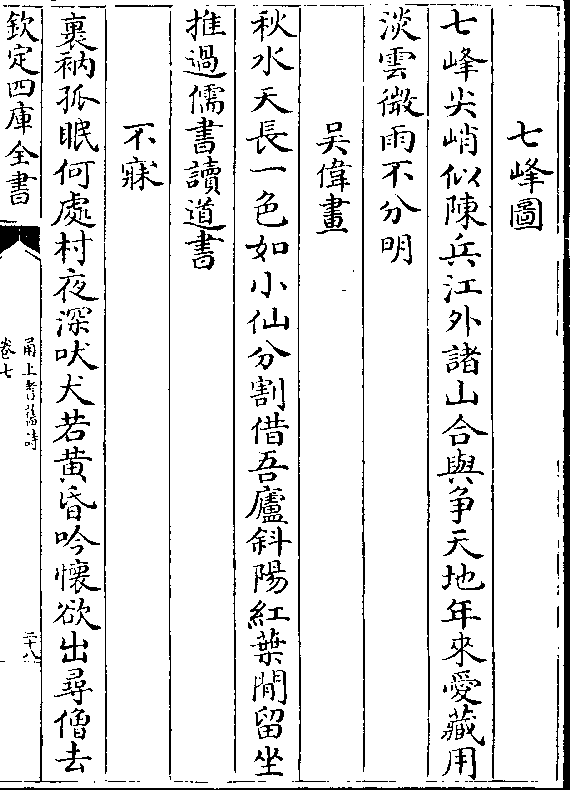 七峰圖
七峰尖峭似陳兵江外諸山合與爭天地年來愛藏用
淡雲微雨不分明
吴偉畫
秋水天長一色如小仙分割借吾廬斜陽紅葉閒留坐
推過儒書讀道書
不寐
裹衲孤眠何處村夜深吠犬若黄昏吟懷欲出尋僧去
欽定四庫全書
甬上耆舊詩
卷七
二十八